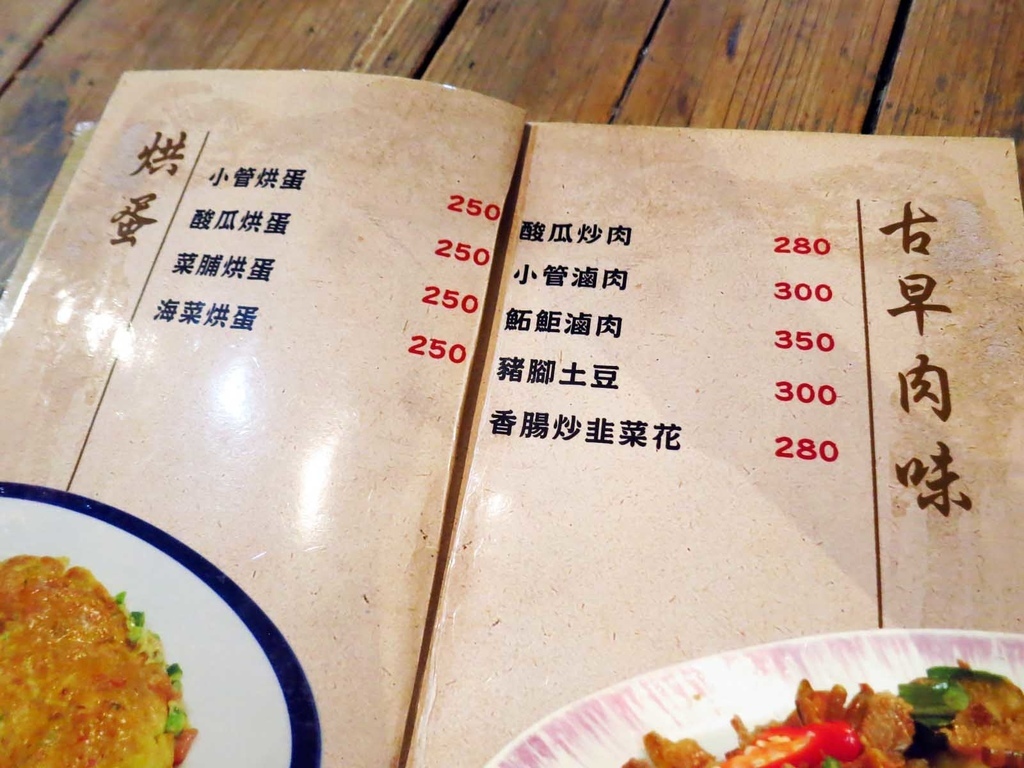 烘蛋
小管烘蛋 250
酸瓜烘蛋 250
菜脯烘蛋 250
海菜烘蛋 250
古早肉味
酸瓜炒肉 280
小管滷肉 300
鮖鮔滷肉 350
豬腳土豆 300
香腸炒韭菜花 280